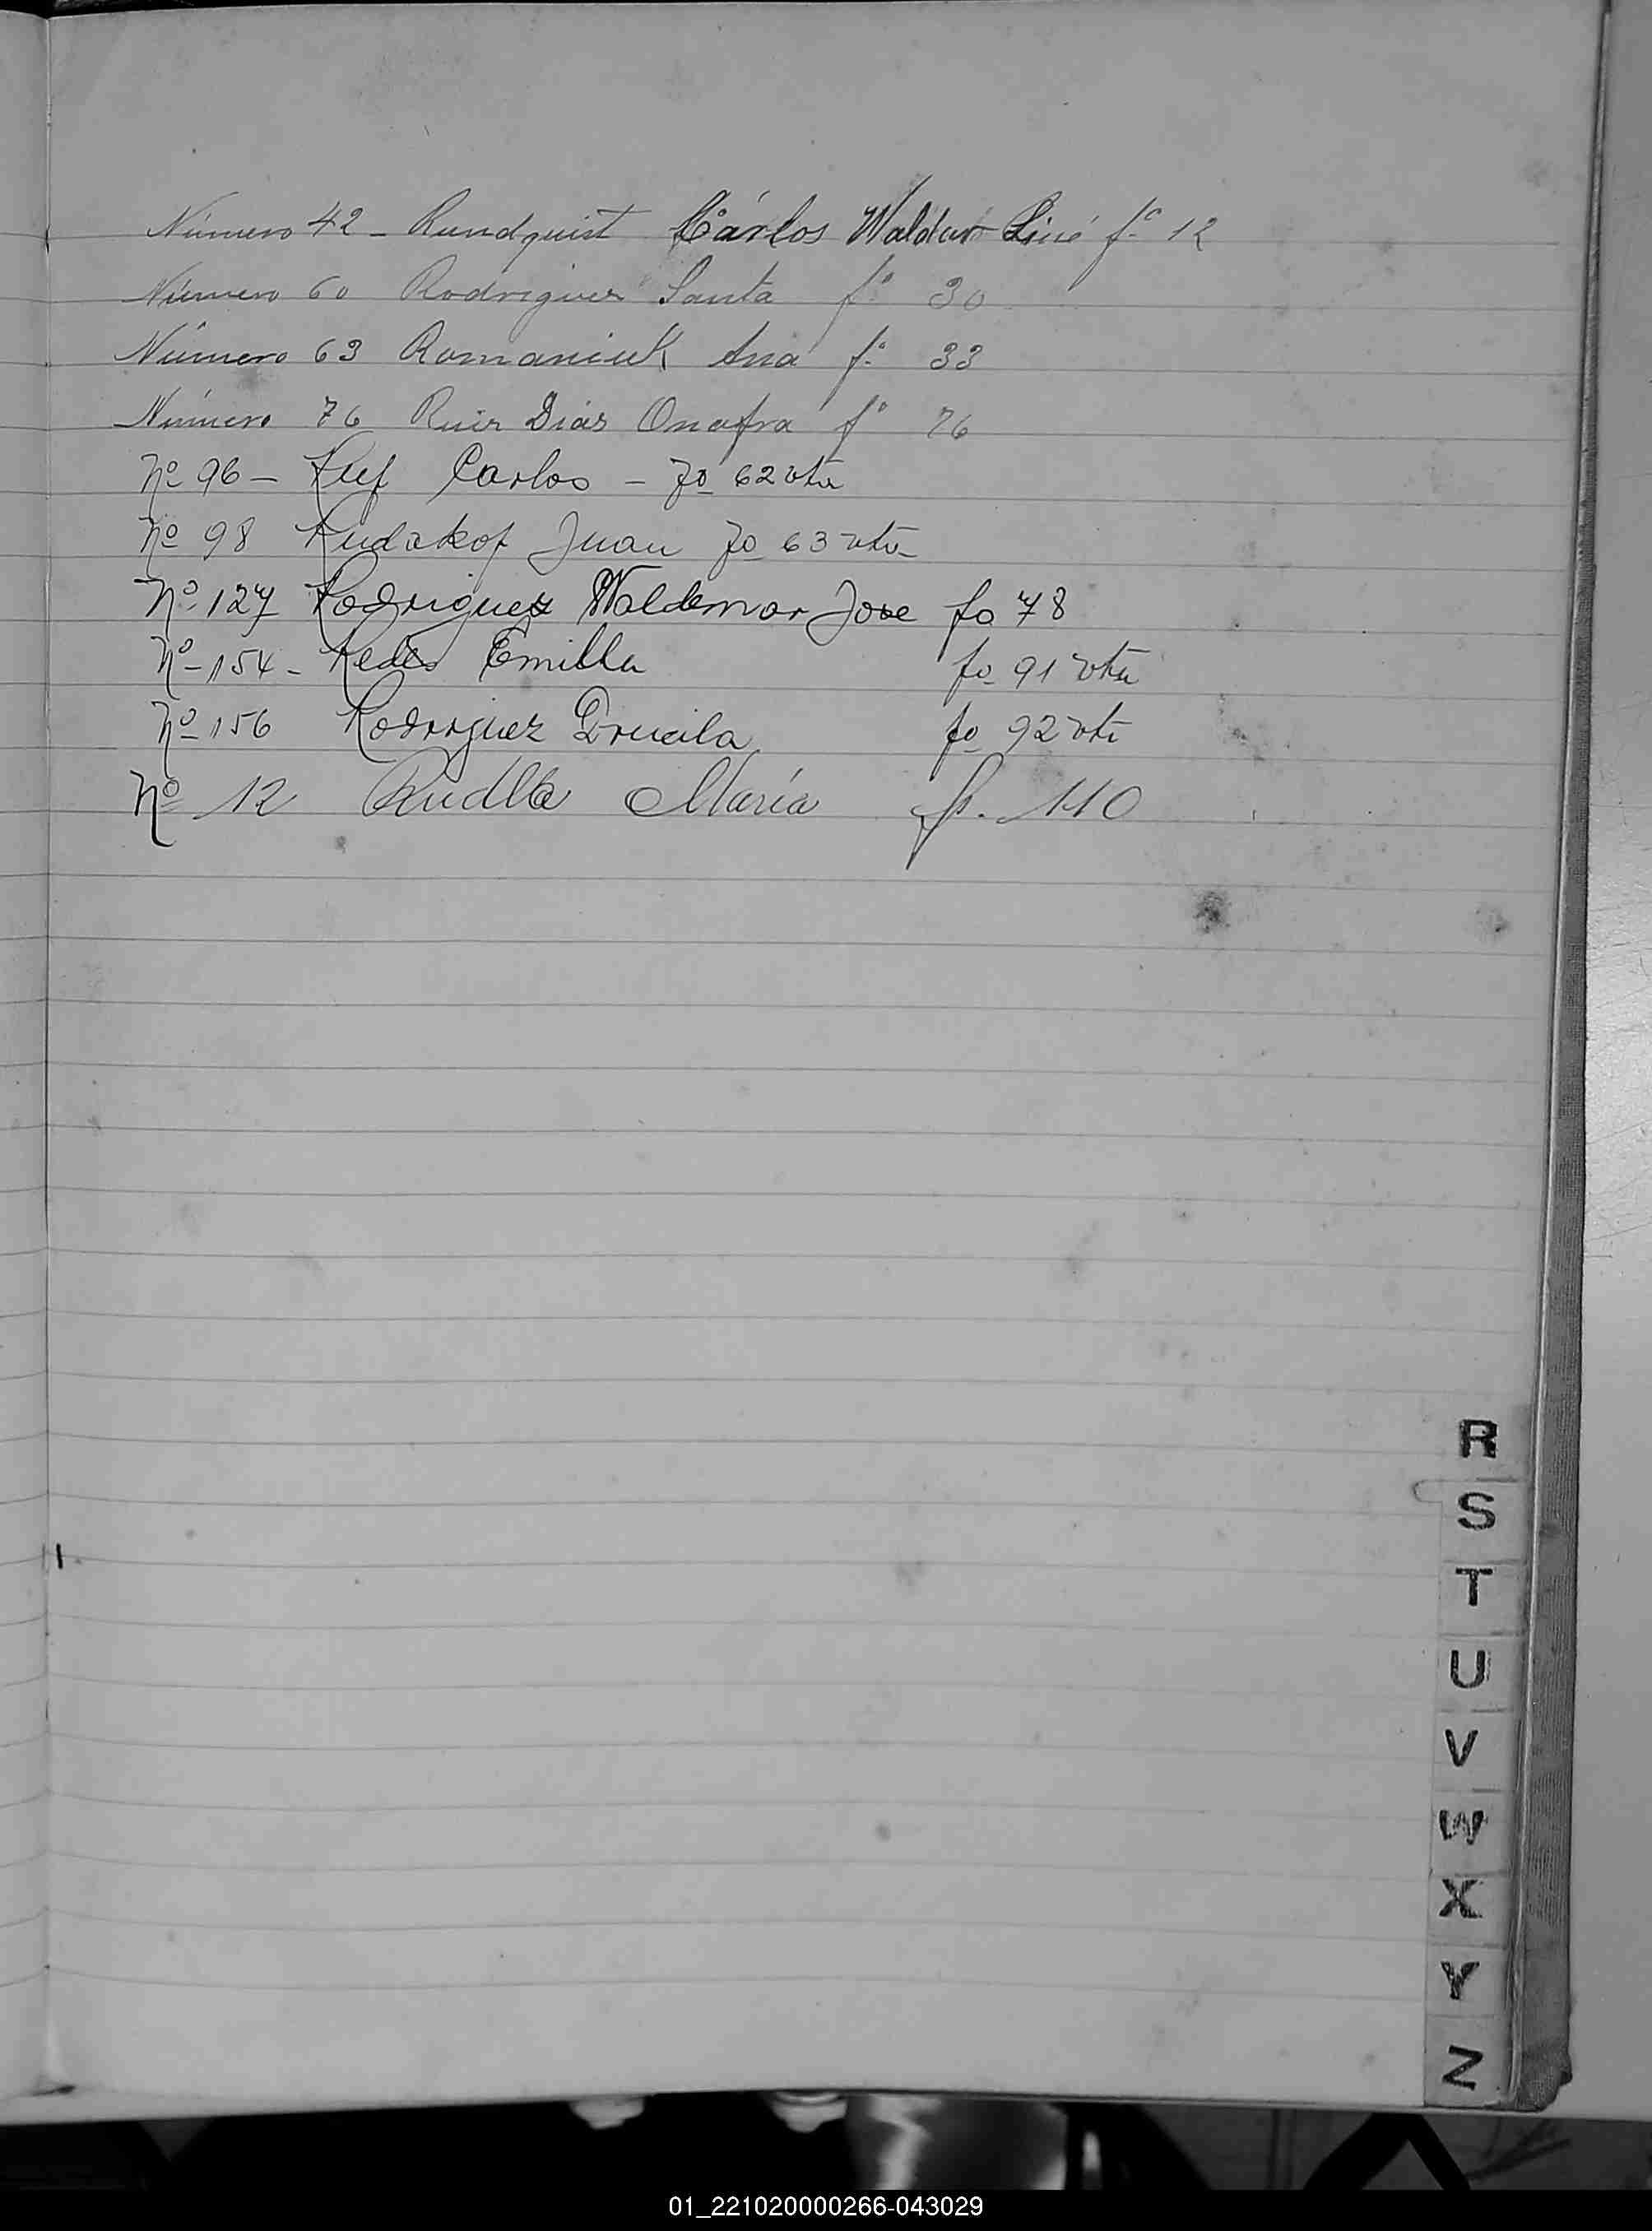 Número 42 - Rundquist Cárlos Waldar Liné fº 12
Número 60 Rodriguez Santa fº 30
Número 63 Romaniuk Ana fº 33
Número 76 Ruiz Diáz Onofra fº 76
Nº 96 - Ruf Carlos - fo 62 vta
Nº 98 Rudakof Juan fo 63 vta
Nº 127 Rodriguez Waldemar Jose fo 78
Nº 154 - Redes Emilla fo 91 vta
Nº 156 Rodriguez Drucila fo 92 vta
Nº 12 Rudlla María fº. 110
R
S
T
U
V
W
X
Y
Z
01_221020000266-043029